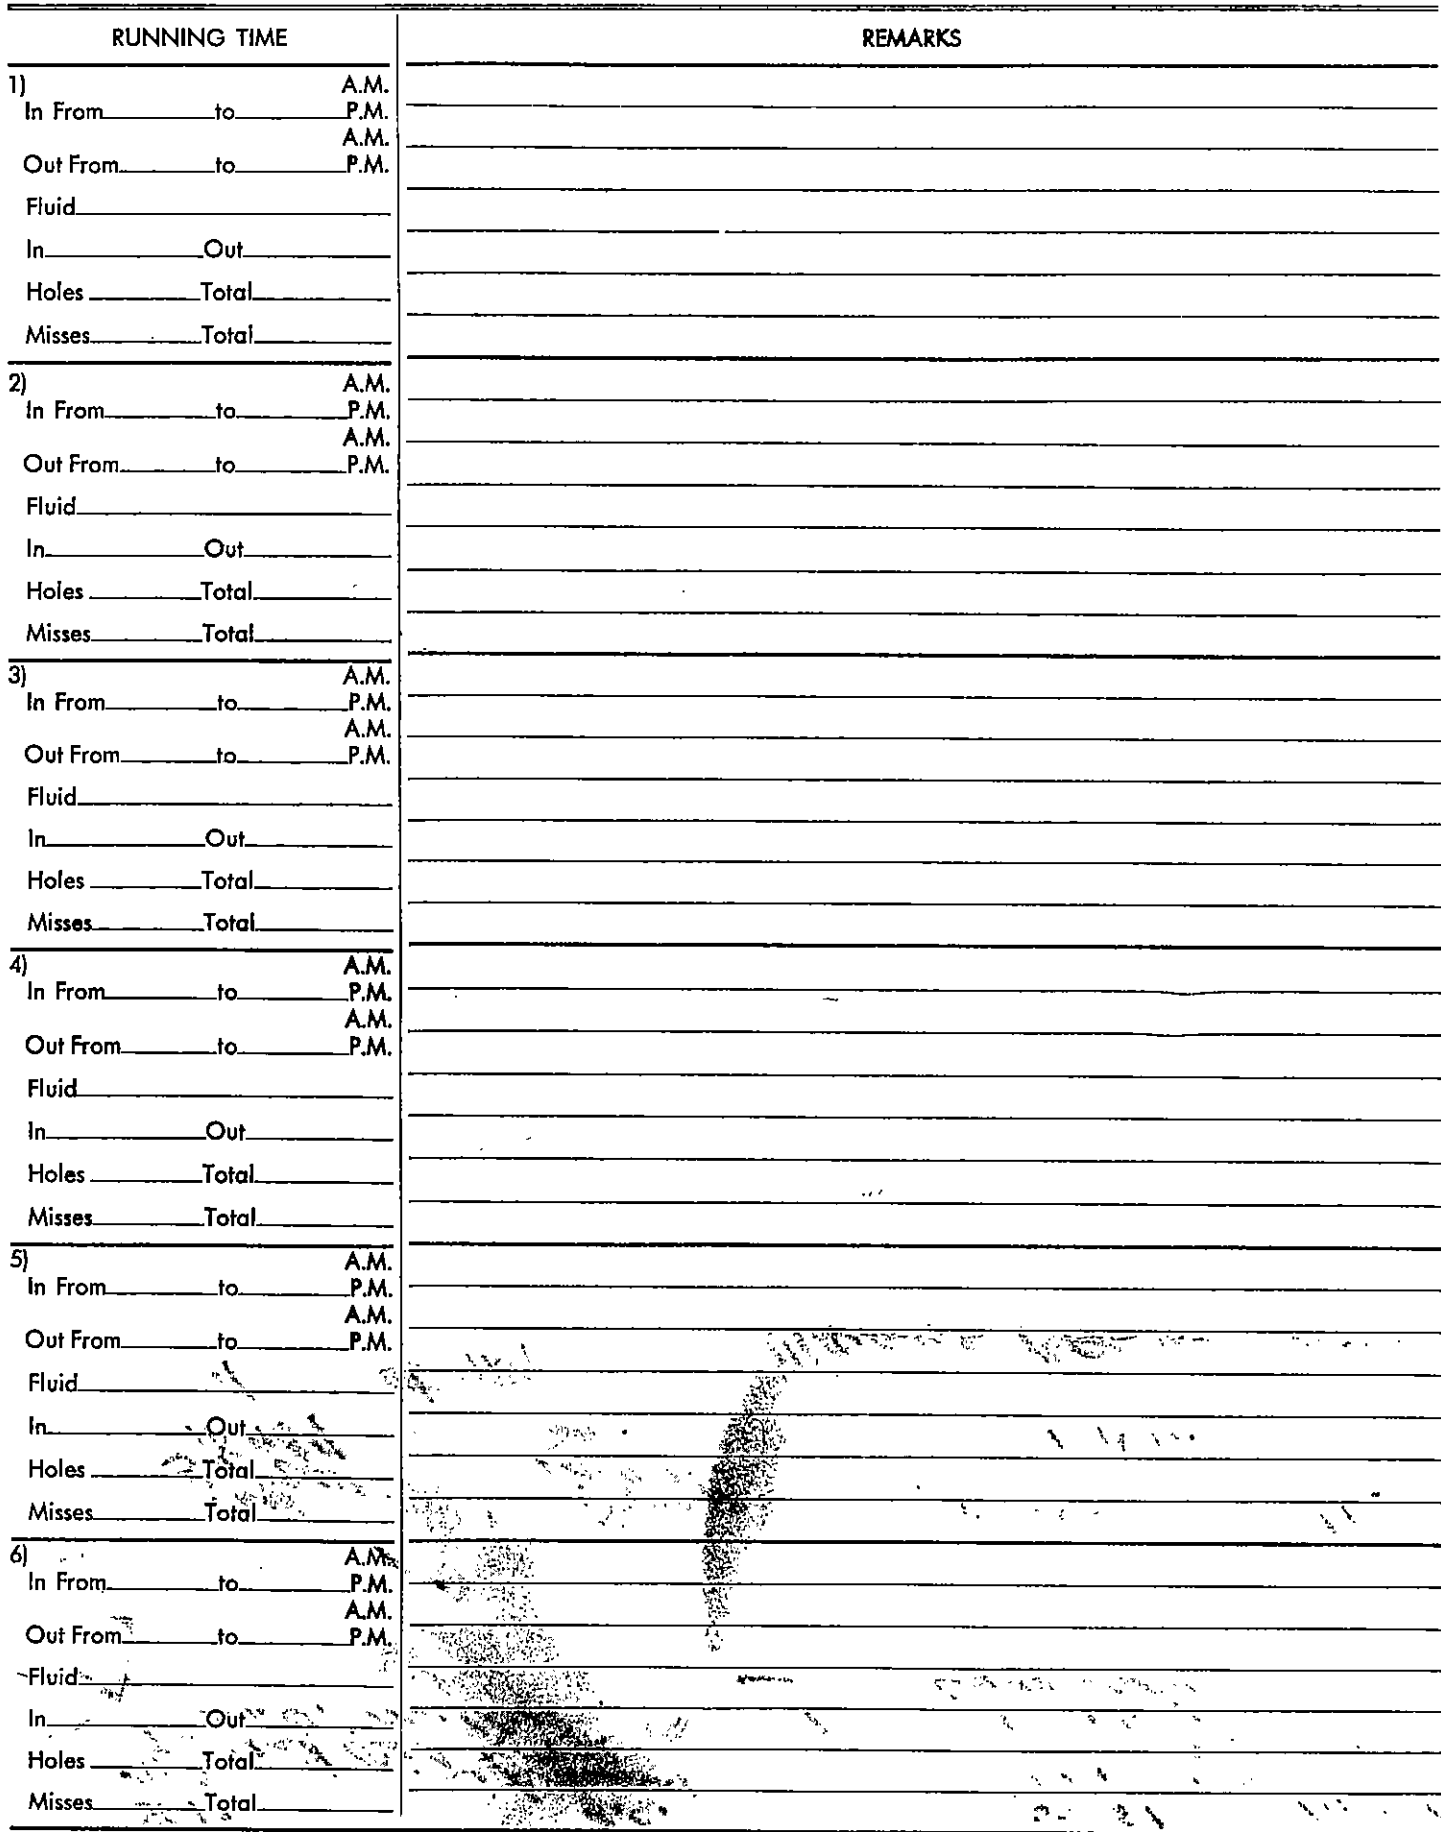 RUNNING TIME REMARKS
1) A.M.
In From to P.M.
A.M.
Out From to P.M.
Fluid
In Out
Holes Total
Misses Total
2) A.M.
In From to P.M.
A.M.
Out From to P.M.
Fluid
In Out
Holes Total
Misses Total
3) A.M.
In From to P.M.
A.M.
Out From to P.M.
Fluid
In Out
Holes Total
Misses Total
4) A.M.
In From to P.M.
A.M.
Out From to P.M.
Fluid
In Out
Holes Total
Misses Total
5) A.M.
In From to P.M.
A.M.
Out From to P.M.
Fluid
In Out
Holes Total
Misses Total
6) A.M.
In From to P.M.
A.M.
Out From to P.M.
Fluid
In Out
Holes Total
Misses Total